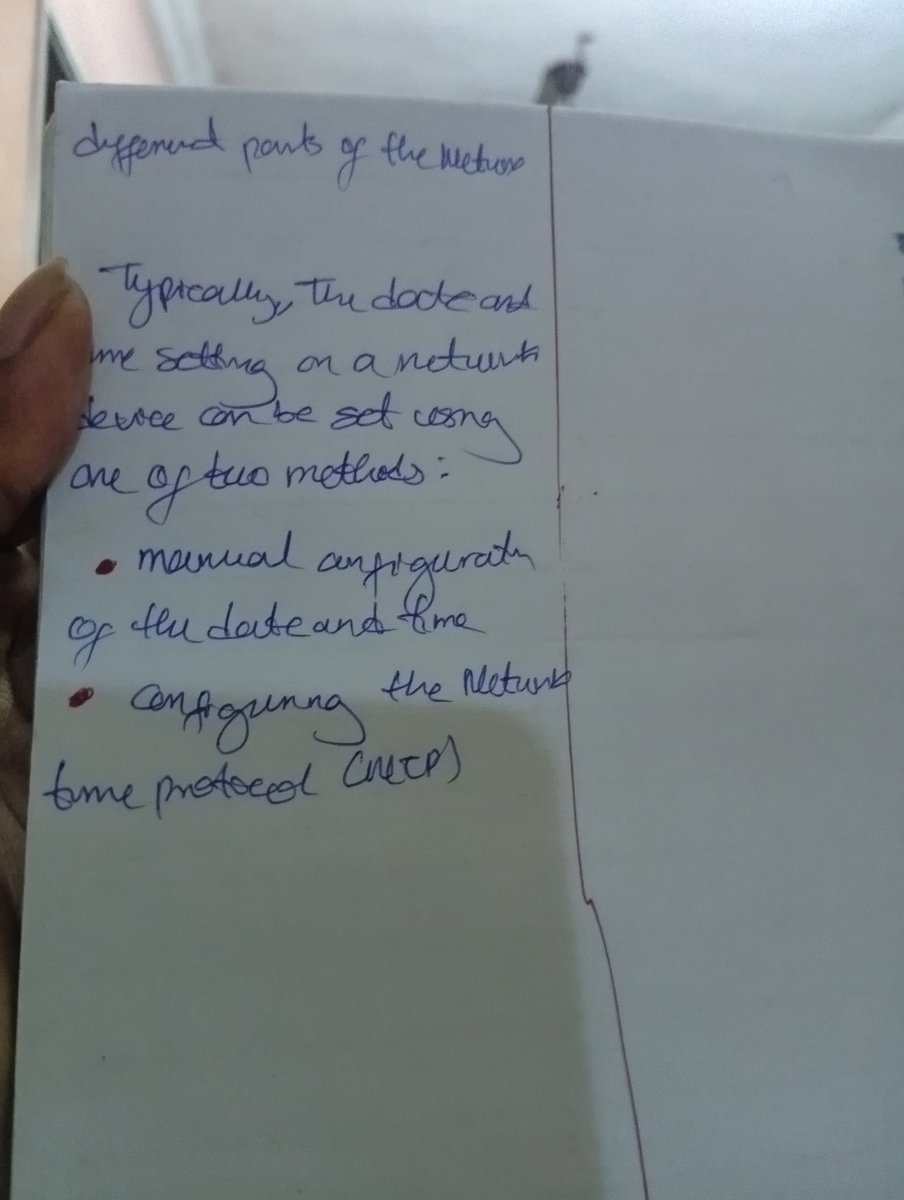 different parts of the Networ
Typically, The date and
me setting on a network
device can be set using
one of two methods:
• manual configuratn
of the date and time
• configuring the Network
time protocol